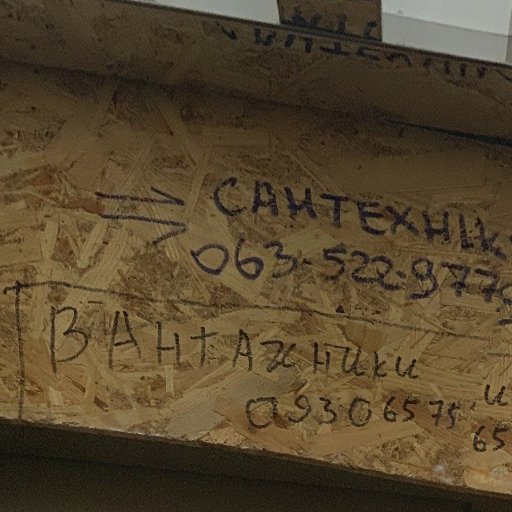 САНТЕХНІК
063-522-977
ВАНТАЖНИКИ
09306575
65